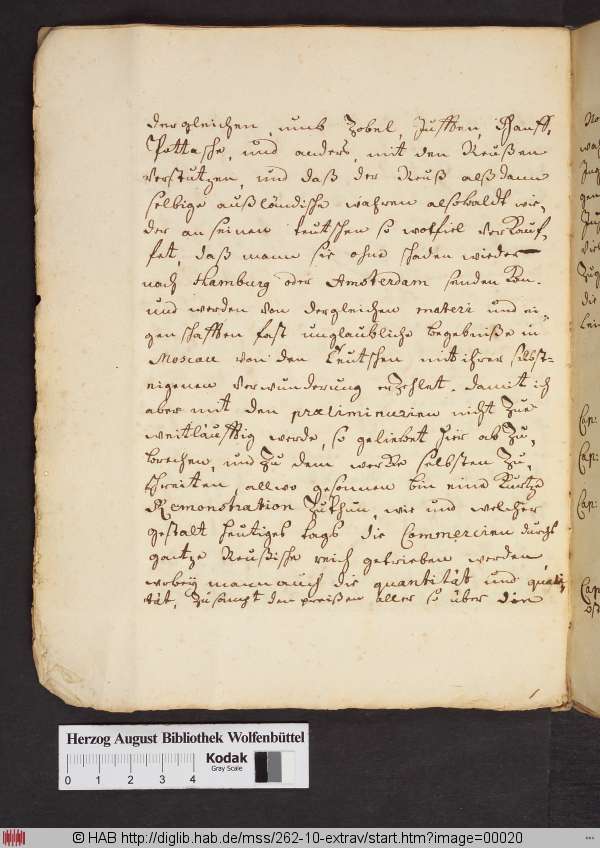 dergleichen, umb Zobel, Jufften, Hanff,
Pottasche, und anders, mit den Reußen
verstutzen, und daß der Reuß alßdann
selbige außländische wahren alsobaldt wie,
der an seinen teutschen so wolfiel verkauf-
fet, daß mann sie ohne schaden wieder
nach Hamburg oder Amsterdam senden kon.
und werden von dergleichen materi und ei-
genschafften fast unglaubliche begebniße in
Moscau von den Teutschen mit ihrer selbst-
eigenen verwunderung erzehlet. damit ich
aber mit den præliminarien nicht zue
weitläufftig werde, so geliebet hier ab zu,
brechen, und zu dem wercke selbsten zu
schreiten allwo gesonnen bin eine kurtze
Remonstration zuthun, wie und welcher
gestalt heutiges tags die Commercien durchs
gantze Reußische reich getrieben werden,
worbey mann auch die quantität und quali,
tät, zusampt den preißen aller so über den
Cap:
Cap:
Cap:
Herzog August Bibliothek Wolfenbüttel
0 1 2 3 4
Kodak
Gray Scale
© HAB http://diglib.hab.de/mss/262-10-extrav/start.htm?image=00020